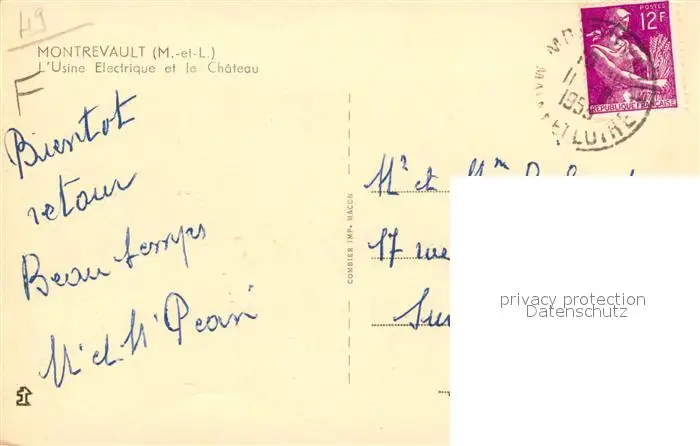 49
MONTREVAULT (M.-et-L.)
L'Usine Electrique et le Château
F
Bientot
retour
Beau temps
COMBIER IMP. MACON
POSTES
12F
REPUBLIQUE FRANÇAISE
11
ET LOIRE
Mr et Mm
17 rue
privacy protection
Datenschutz